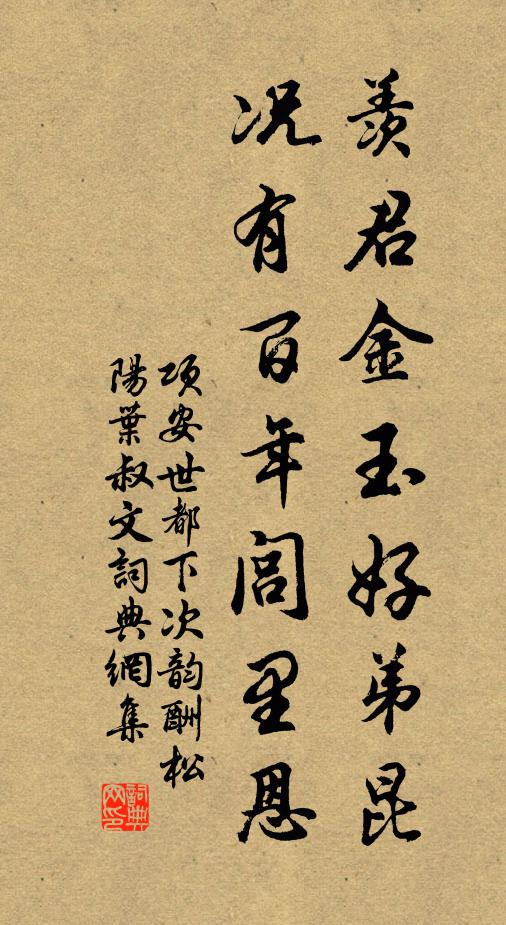 羨君金玉好弟昆
况有百年閭里恩
項安世都下次韵酬松
陽葉叔文詞典網集
詞典網印